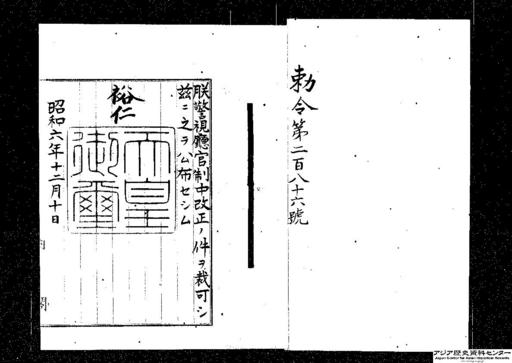 勅令第二百八十六號
朕警視廳官制中改正ノ件ヲ裁可シ
茲ニ之ヲ公布セシム
裕仁
天皇御璽
昭和六年十二月十日
内閣
アジア歴史資料センター
Japan Center for Asian Historical Records